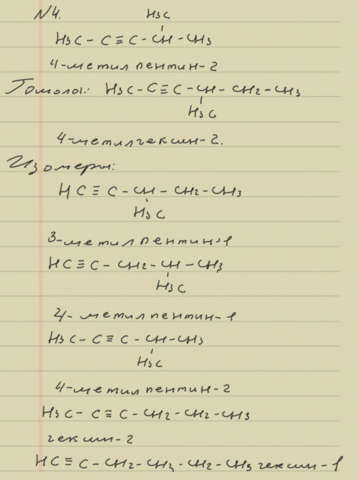 N4.
H₃C
H₃C - C≡C - CH - CH₃
4-метил пентин-2
Гомолог: H₃C - C≡C - CH - CH₂ - CH₃
H₃C
4-метилгексин-2.
Изомеры:
HC≡C - CH - CH₂ - CH₃
H₃C
3-метилпентин-1
HC≡C - CH₂ - CH - CH₃
H₃C
4-метилпентин-1
H₃C - C≡C - CH - CH₃
H₃C
4-метилпентин-2
H₃C - C≡C - CH₂ - CH₂ - CH₃
гексин-2
HC≡C - CH₂ - CH₂ - CH₂ - CH₃ гексин-1